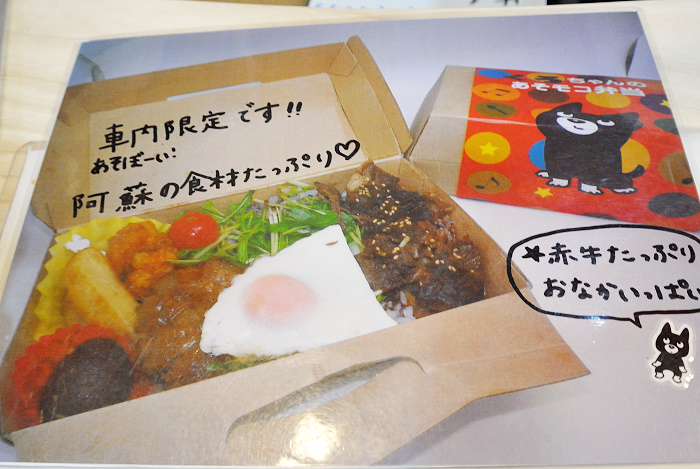 車内限定です!!
あそぼーい!
阿蘇の食材たっぷり♡
ちゃんの
あそモコ弁当
★赤牛たっぷり
おなかいっぱい